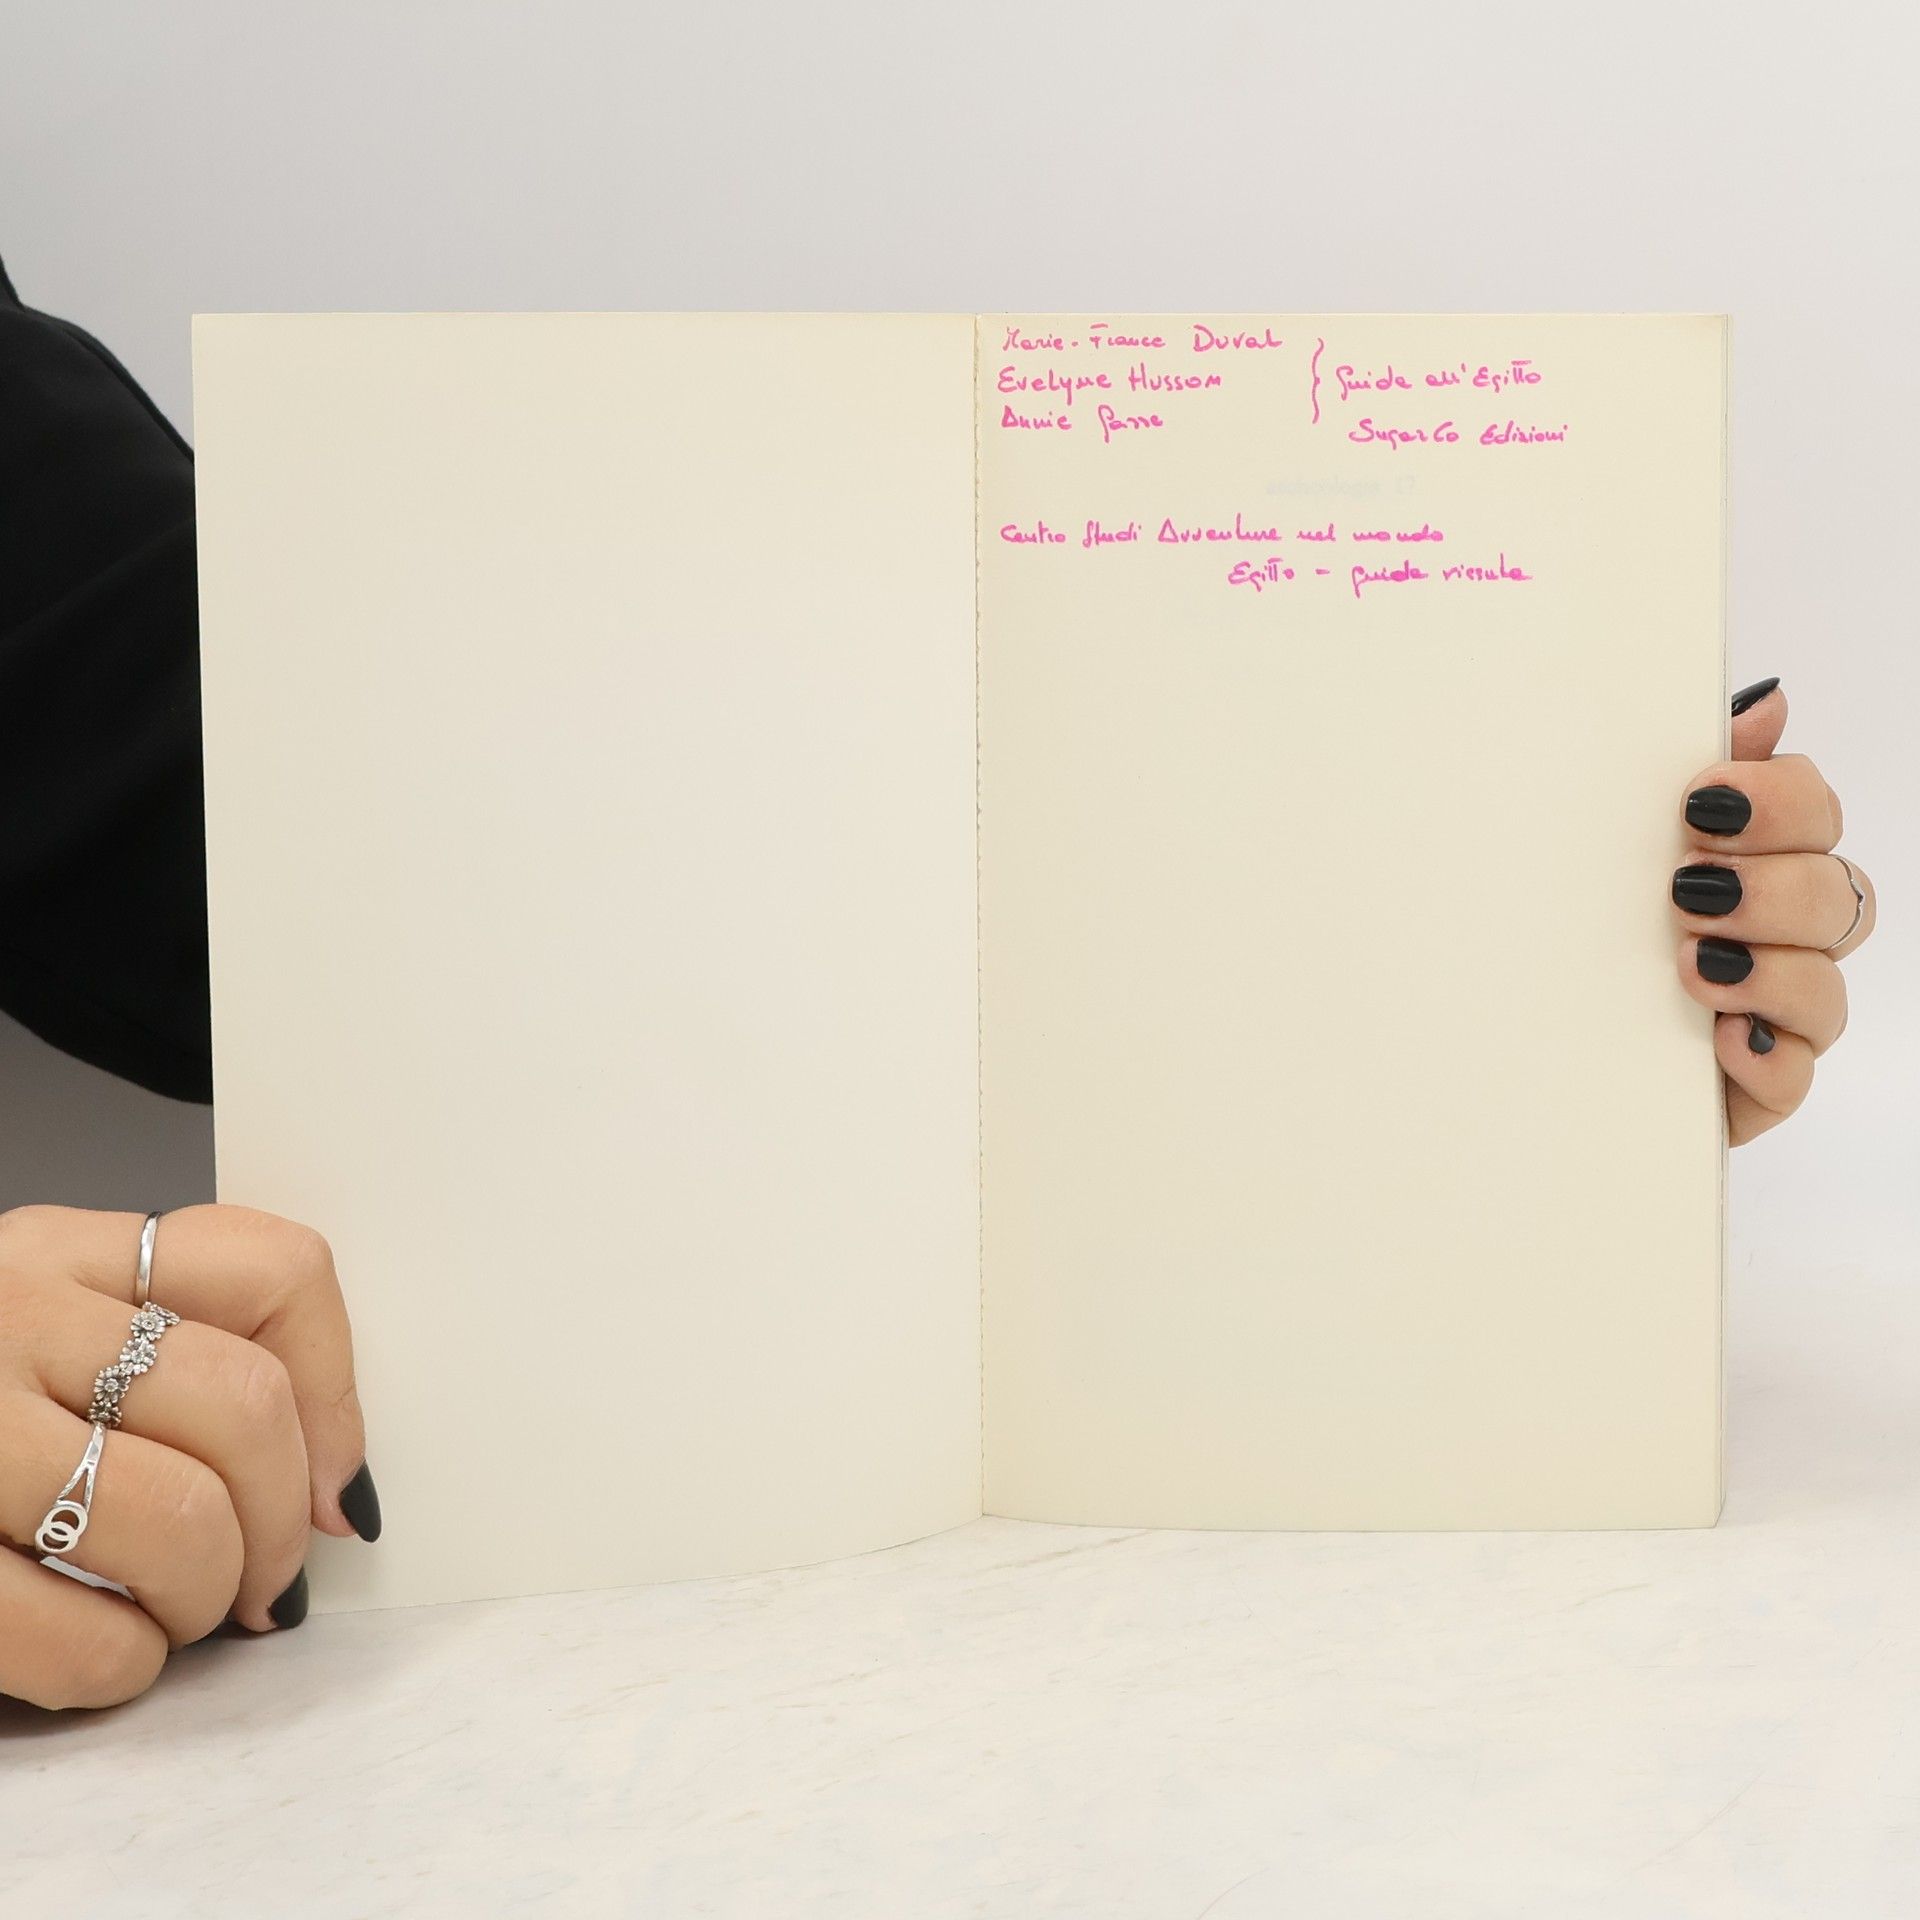 Marie-France Duval
Evelyne Hussom
Annie Garre
} Guida all'Egitto
SugarCo Edizioni
Centro Studi Avventure nel mondo
Egitto - guida vissuta